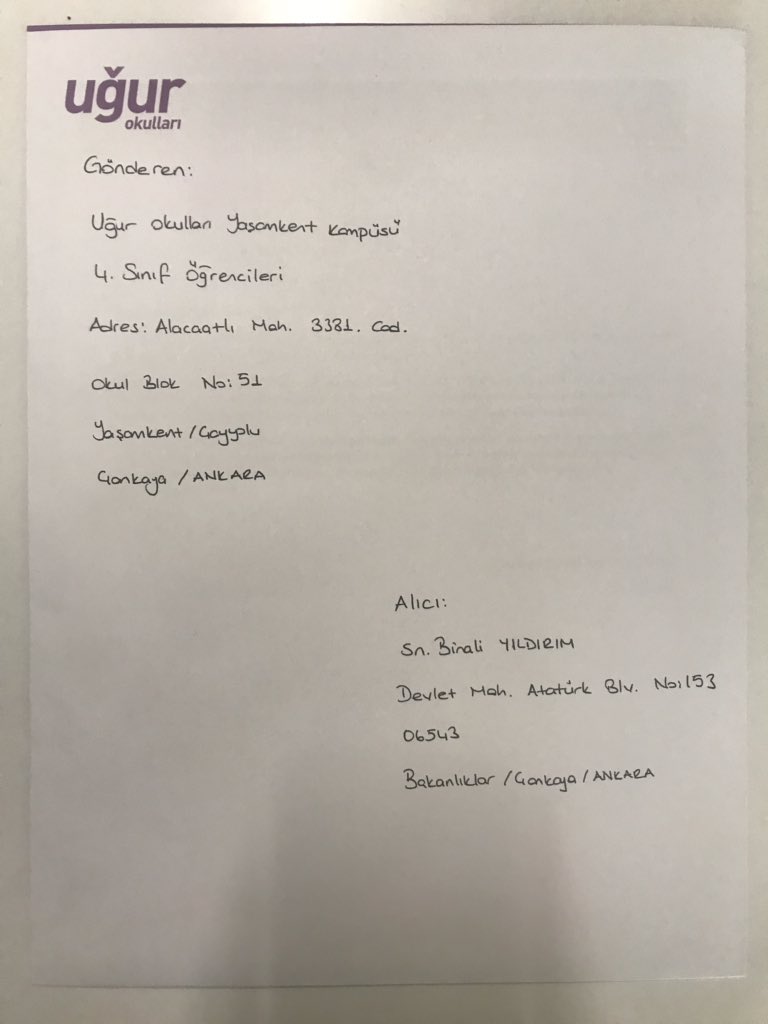 uğur
okulları
Gönderen:
Uğur Okulları Yaşamkent Kampüsü
4. Sınıf Öğrencileri
Adres: Alacaatlı Mah. 3381. Cad.
Okul Blok No: 51
Yaşamkent/Çayyolu
Çankaya / ANKARA
Alıcı:
Sn. Binali YILDIRIM
Devlet Mah. Atatürk Blv. No:153
06543
Bakanlıklar / Çankaya / ANKARA